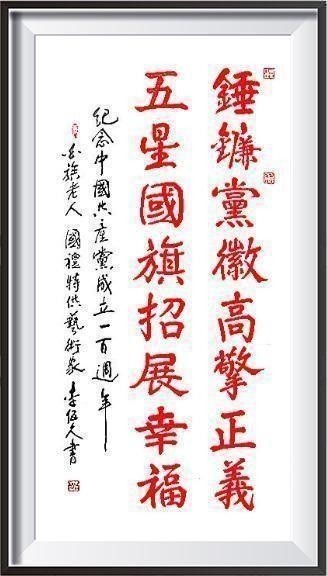 錘鐮黨徽高擎正義
五星國旗招展幸福
紀念中國共產黨成立一百週年
族老人 國禮特供藝術家 李伍久書